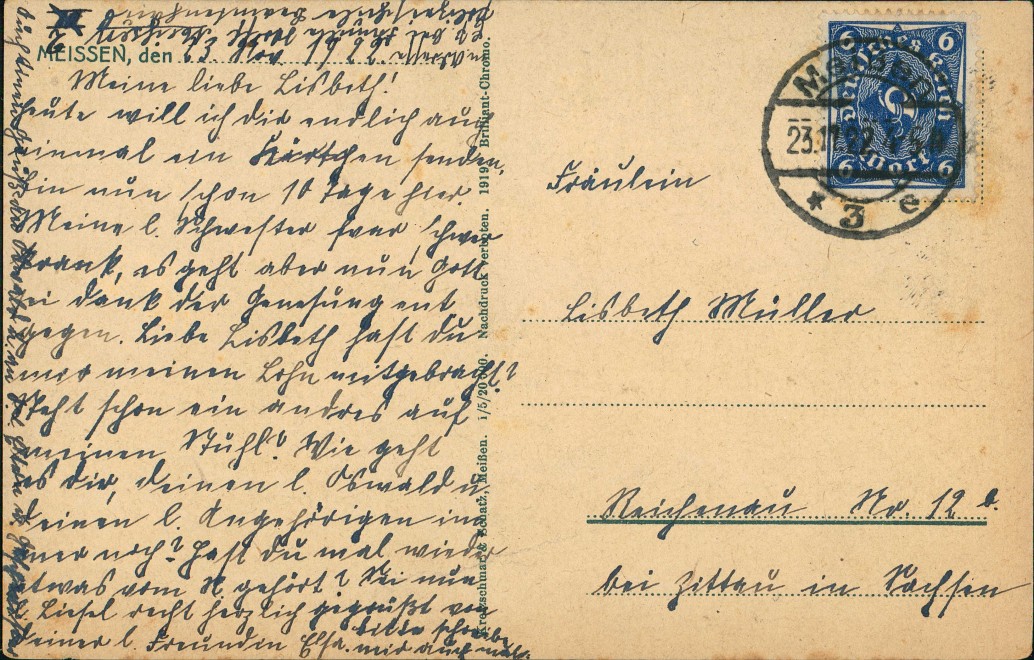 MEISSEN, den 23. Nov 1922
Meine liebe Lisbeth!
heute will ich dir endlich auch
einmal ein Kärtchen senden,
bin nun schon 10 Tage hier.
Meine l. Schwester war schwer
krank, es geht aber nun Gott
sei dank der Genesung ent
gegen. Liebe Lisbeth hast du
mir meinen Lohn mitgebracht?
steht schon ein andres auf
meinen Stuhl? Wie geht
es dir, deinen l. Oswald u.
deinen l. Angehörigen im
mer noch? Hast du mal wieder
etwas vom R. gehört? Sei nun
l. Liesel recht herzlich gegrüßt von
deiner l. Freundin Elsa. bitte schreibe
mir auch mal.
1919 Brilliant-Chromo.
Nachdruck verboten.
i/5/20 700.
Kretzschmar & Schatz, Meißen.
6 Deutsches Reich 6
6 Mark 6
23.11.22
* 3 c
Fräulein
Lisbeth Müller
Reichenau No. 12 b.
bei Zittau in Sachsen